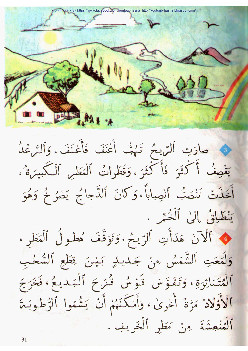 صَارَتِ الرِّيحُ تَهُبُّ أَعْنَفَ فَأَعْنَفَ، وَالرَّعْدُ
يَقْصِفُ أَكْثَرَ فَأَكْثَرَ، وَقَطَرَاتُ الْمَطَرِ الْكَبِيرَةُ،
أَخَذَتْ تَنْصَبُّ انْصِبَابًا، وَكَانَ الدَّجَاجُ يَصْرُخُ وَهُوَ
يَنْطَلِقُ إِلَى الْخُمِّ.
اَلْآنَ هَدَأَتِ الرِّيحُ، وَتَوَقَّفَ هُطُولُ الْمَطَرِ،
وَلَمَعَتِ الشَّمْسُ مِنْ جَدِيدٍ بَيْنَ قِطَعِ السُّحُبِ
الْمُتَنَاثِرَةِ، وَتَقَوَّسَ قَوْسُ قُزَحَ الْبَدِيعُ، فَخَرَجَ
الْأَوْلَادُ مَرَّةً أُخْرَى، وَأَمْكَنَهُمْ أَنْ يَشُمُّوا الرُّطُوبَةَ
الْمُنْعِشَةَ مِنْ مَطَرِ الْخَرِيفِ.